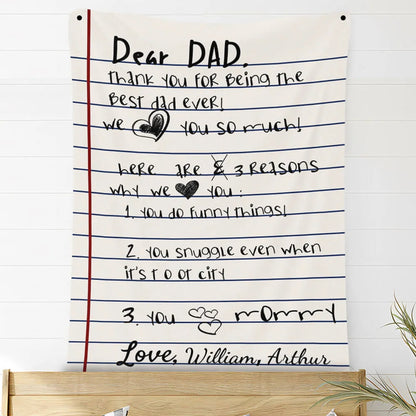 Dear DAD,
Thank you for Being the
Best dad ever!
we you so much!
here are 2 3 Reasons
why we you :
1. you do funny things!
2. you snuggle even when
it's r o or city
3. you mommy
Love, William, Arthur